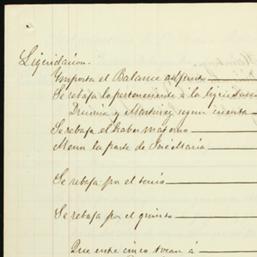 Liquidacion.
Importa el Balance adjunto
Se rebaja lo perteneciente á la
Divinia y Martinez segun cuenta
Se rebaja el haber
Menos la parte de José Maria
Se rebaja por el tercio
Se rebaja por el quinto
Que entre cinco tocan á